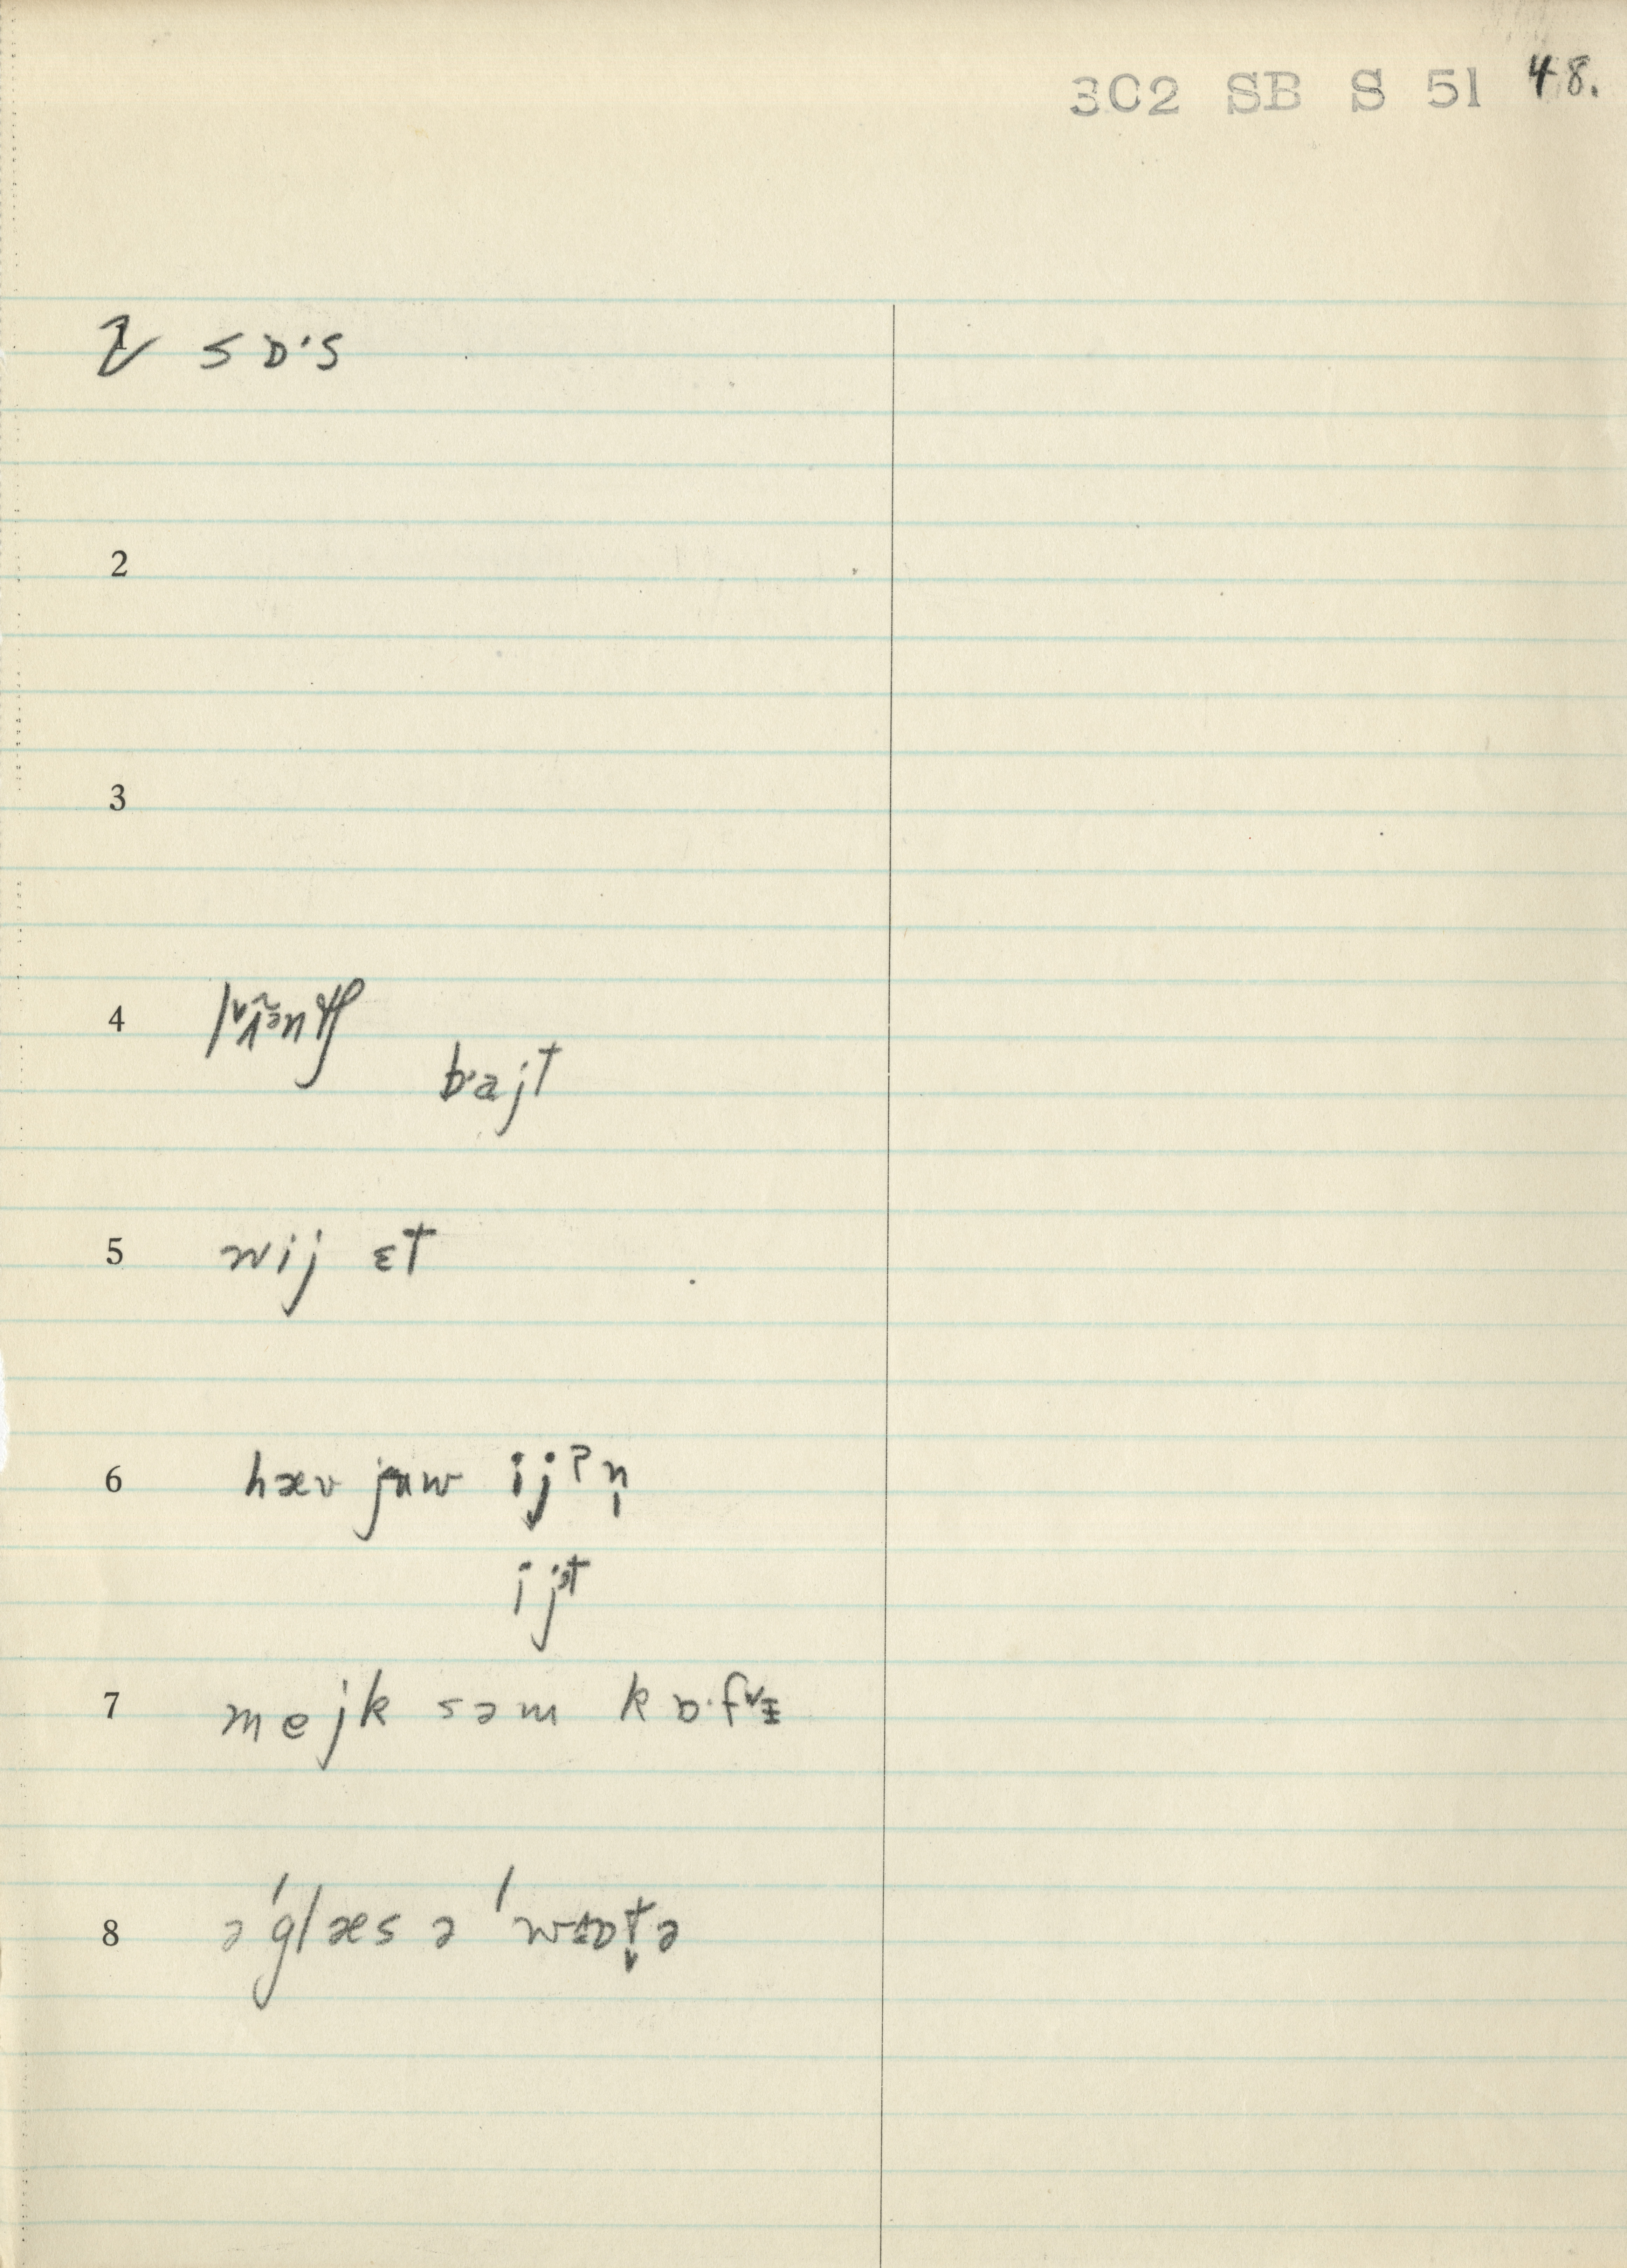 3C2 SB S 51 48.
1 sɒ·s
2
3
4
b·ajt
5 wij ɛt
6 hæv juw ijʔn̩
ijət
7 mejk səm kɒ·f˅ɨ
8 ə ˈglæs ə ˈwɒt̬ə